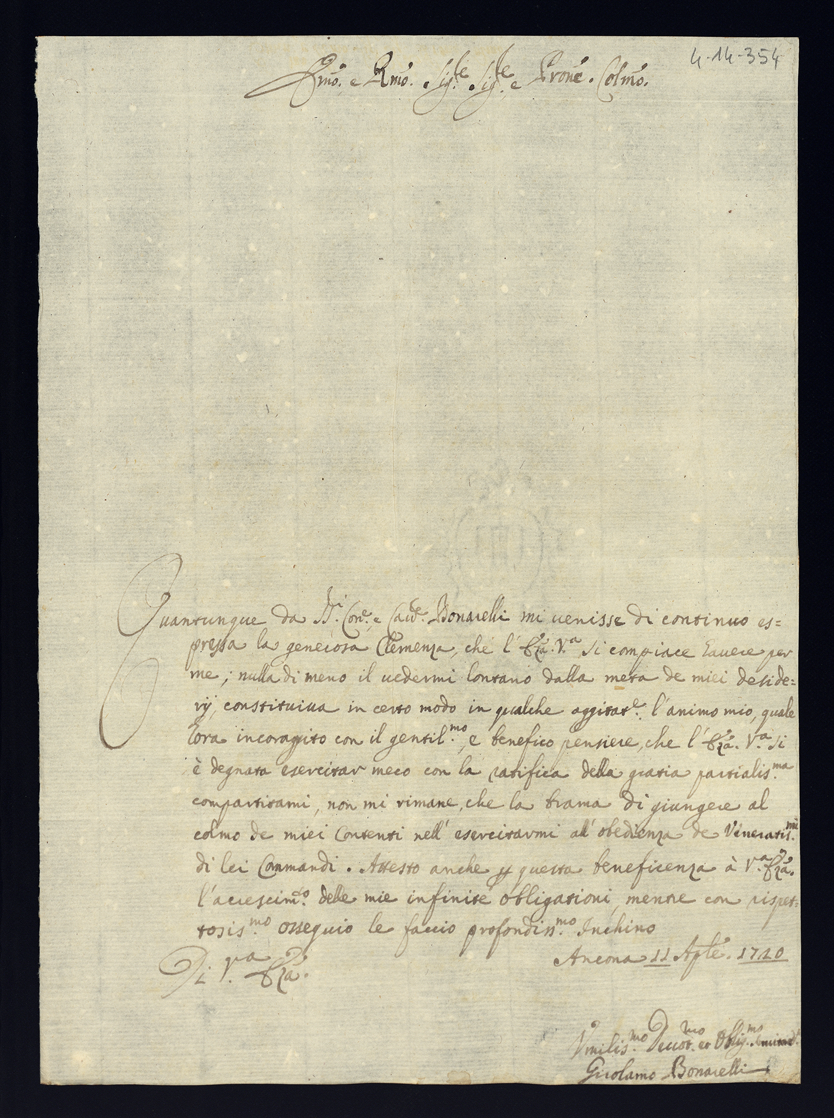 4-14-354
Emo. e Rmo. Sigre. Sigre. e Prone. Colmo.
Quantunque da Conte. e Cavre. Bonarelli mi venisse di continuo es=
pressa la generosa Clemenza, che l' Eza. Va. si compiace havere per
me; nulla di meno il vedermi lontano dalla meta de miei deside=
rij, constituiva in certo modo in qualche aggitate. l'animo mio, quale
hora incoraggito con il gentilmo. e benefico pensiere, che l' Eza. Va. si
è degnata esercitar meco con la ratifica della gratia partialisma.
compartitami, non mi rimane, che la brama di giungere al
colmo de miei Contenti nell' esercitarmi all' obedienza de Veneratismi.
di lei Commandi. Attesto anche p questa beneficenza à Va. Eza.
l'accrescimto. delle mie infinite obligationi, mentre con rispet=
tosismo. ossequio le faccio profondissmo. Inchino
Di Va. Eza.
Ancona 11 Aple. 1710
Vmilismo. Devotmo. et Obligmo.
Girolamo Bonarelli